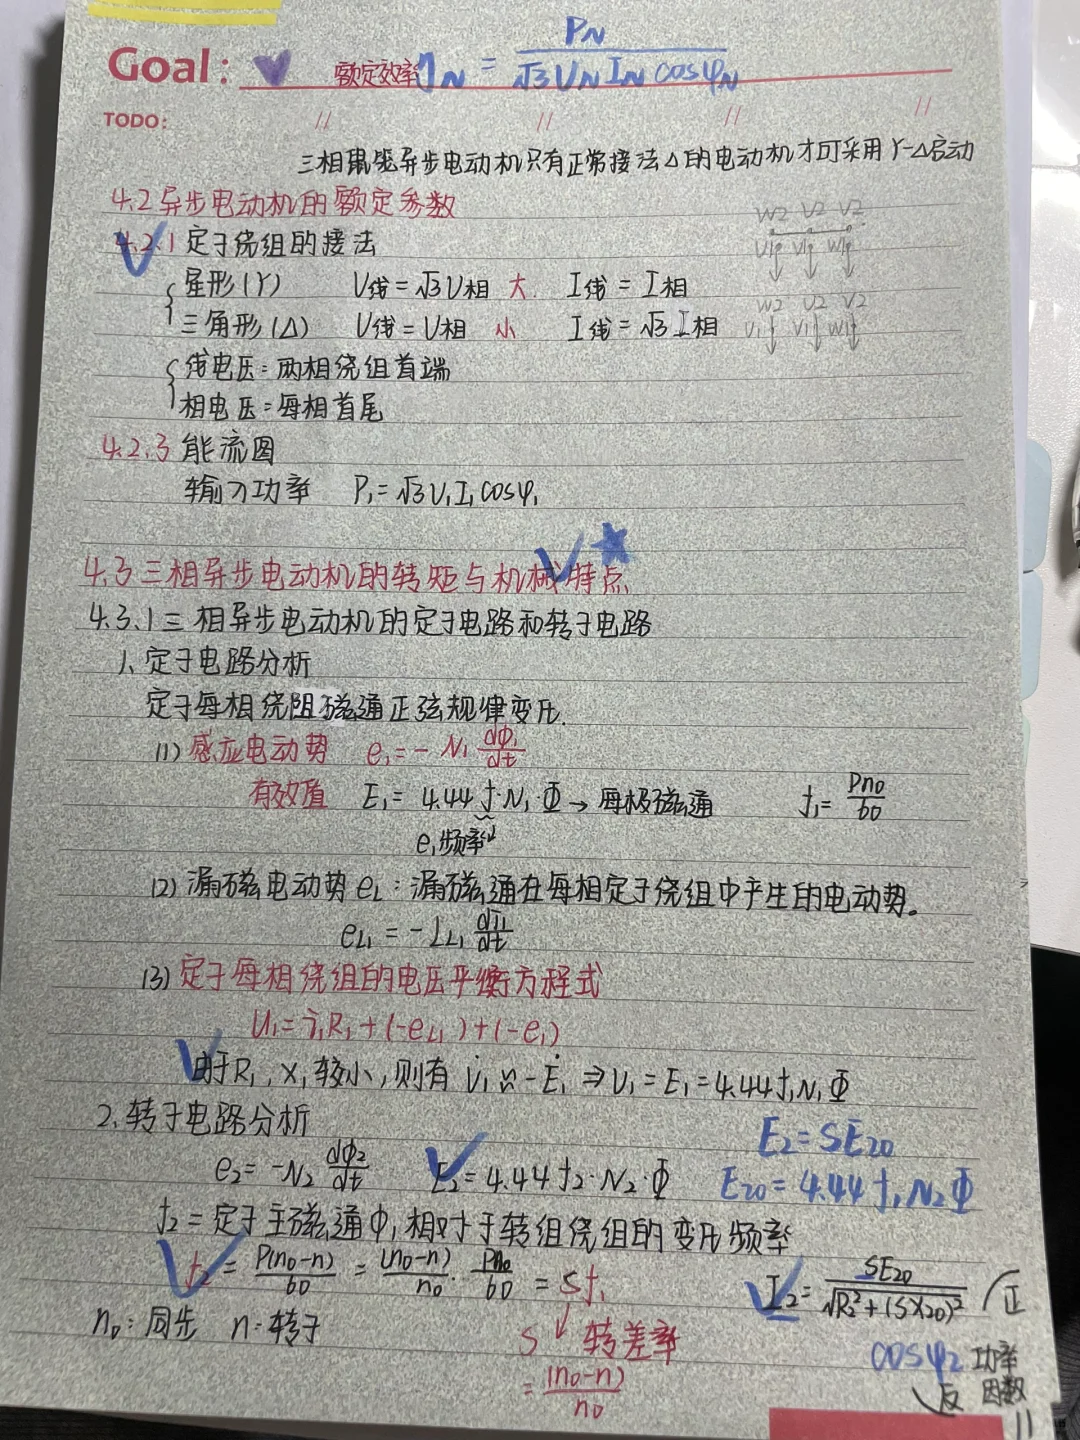 Goal: 额定效率 ηN = PN / √3 UN IN cosφN
TODO:
三相鼠笼异步电动机只有正常接法△的电动机才可采用Y-△启动
4.2 异步电动机的额定参数
W2 U2 V2
4.2.1 定子绕组的接法
U1 V1 W1
星形(Y) U线=√3U相 大 I线=I相
W2 U2 V2
三角形(△) U线=U相 小 I线=√3 I相
U1 V1 W1
线电压=两相绕组首端
相电压=每相首尾
4.2.3 能流图
输入功率 P1=√3U1I1cosφ1
4.3 三相异步电动机的转矩与机械特点
4.3.1 三相异步电动机的定子电路和转子电路
1、定子电路分析
定子每相绕阻磁通正弦规律变化.
(1) 感应电动势 e1=-N1 dΦ1/dt
有效值 E1=4.44f·N1·Φ→每极磁通 f1=Pn0/60
e1频率
(2) 漏磁电动势eL:漏磁通在每相定子绕组中产生的电动势。
eL1=-LL1 di1/dt
(3) 定子每相绕组的电压平衡方程式
U1=i1R1+(-eL1)+(-e1)
由于R1,X1较小,则有 U̇1≈-Ė1⇒U1=E1=4.44f1N1Φ
2、转子电路分析
E2=SE20
e2=-N2 dΦ2/dt E2=4.44f2·N2·Φ E20=4.44f1N2Φ
f2=定子主磁通Φ1相对于转组绕组的变化频率
f2=P(n0-n)/60=(n0-n)/n0·Pn0/60=Sf1
I2=SE20/√R2²+(SX20)² 正
n0:同步 n:转子
S 转差率
=(n0-n)/n0
cosφ2 功率因数
反